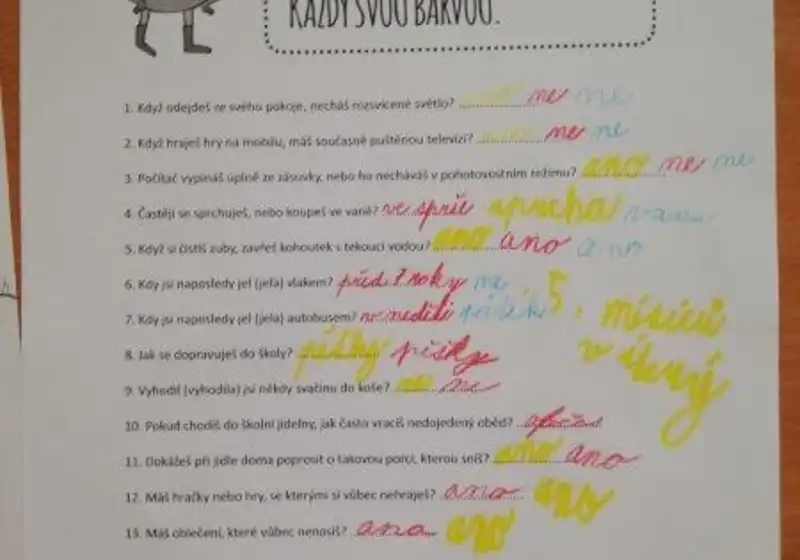 KAŽDÝ SVOU BARVOU.
1. Když odejdeš ze svého pokoje, necháš rozsvícené světlo? ne ne
2. Když hraješ hry na mobilu, máš současně puštěnou televizi? ne ne
3. Počítač vypínáš úplně ze zásuvky, nebo ho necháváš v pohotovostním režimu? ano ne ne
4. Častěji se sprchuješ, nebo koupeš ve vaně? ve sprše sprcha vana
5. Když si čistíš zuby, zavřeš kohoutek s tekoucí vodou? ano ano ano
6. Kdy jsi naposledy jel (jela) vlakem? před 7 roky ne 5. měsíců
7. Kdy jsi naposledy jel (jela) autobusem? v neděli v úterý
8. Jak se dopravuješ do školy? pěšky pěšky
9. Vyhodil (vyhodila) jsi někdy svačinu do koše? ne
10. Pokud chodíš do školní jídelny, jak často vracíš nedojedený oběd?
11. Dokážeš při jídle doma poprosit o takovou porci, kterou sníš? ano ano
12. Máš hračky nebo hry, se kterými si vůbec nehraješ? ano ano
13. Máš oblečení, které vůbec nenosíš? ano ano